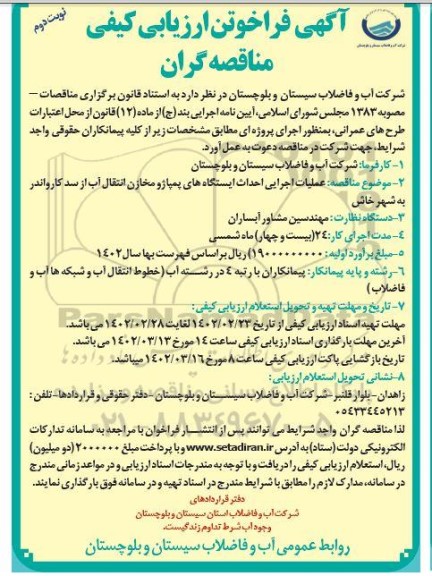 نوبت دوم
آگهی فراخوان ارزیابی کیفی
مناقصه گران
شرکت آب و فاضلاب سیستان و بلوچستان در نظر دارد به استناد قانون برگزاری مناقصات –
مصوبه ۱۳۸۳ مجلس شورای اسلامی، آیین نامه اجرایی بند (ج) از ماده (۱۲) قانون از محل اعتبارات
طرح های عمرانی، بمنظور اجرای پروژه ای مطابق مشخصات زیر از کلیه پیمانکاران حقوقی واجد
شرایط، جهت شرکت در مناقصه دعوت به عمل آورد.
۱- کارفرما: شرکت آب و فاضلاب سیستان و بلوچستان
۲-موضوع مناقصه: عملیات اجرایی احداث ایستگاه های پمپاژ و مخازن انتقال آب از سد کارواندر
به شهر خاش
۳-دستگاه نظارت: مهندسین مشاور آبساران
۴-مدت اجرای کار: ۲۴(بیست و چهار) ماه شمسی
۵-مبلغ برآورد اولیه:
ریال بر اساس فهرست بها سال ۱۴۰۲
۶-رشته و پایه پیمانکار: پیمانکاران با رتبه ۴ در رشته آب (خطوط انتقال آب و شبکه ها آب و
فاضلاب)
۷- تاریخ و مهلت تهیه و تحویل استعلام ارزیابی کیفی:
مهلت تهیه اسناد ارزیابی کیفی از تاریخ ۱۴۰۲/۰۲/۲۳ لغایت ۱۴۰۲/۰۲/۲۸ می باشد.
آخرین مهلت بارگذاری اسناد ارزیابی کیفی ساعت ۱۴ مورخ ۱۴۰۲/۰۳/۱۳ می باشد.
تاریخ بازگشایی پاکت ارزیابی کیفی ساعت ۸ مورخ ۱۴۰۲/۰۳/۱۶ میباشد.
۸-نشانی تحویل استعلام ارزیابی:
زاهدان-بلوار قلنبر- شرکت آب و فاضلاب سیستان و بلوچستان - دفتر حقوقی و قراردادها-تلفن:
۰۵۴۳۳۴۴۵۲۱۳
لذا مناقصه گران واجد شرایط می توانند پس از انتشار فراخوان با مراجعه به سامانه تدارکات
الکترونیکی دولت (ستاد) به آدرس www.setadiran.ir و با پرداخت مبلغ ۲۰۰۰۰۰۰ (دو میلیون)
ریال، استعلام ارزیابی کیفی را دریافت و با توجه به مندرجات اسناد ارزیابی و در مواعد زمانی مندرج
در سامانه، مدارک لازم را مطابق با شرایط مندرج در اسناد تهیه و در سامانه فوق بارگذاری نمایند.
دفتر قراردادهای
شرکت آب و فاضلاب استان سیستان و بلوچستان
وجود آب شرط تداوم زندگیست.
روابط عمومی آب و فاضلاب سیستان و بلوچستان